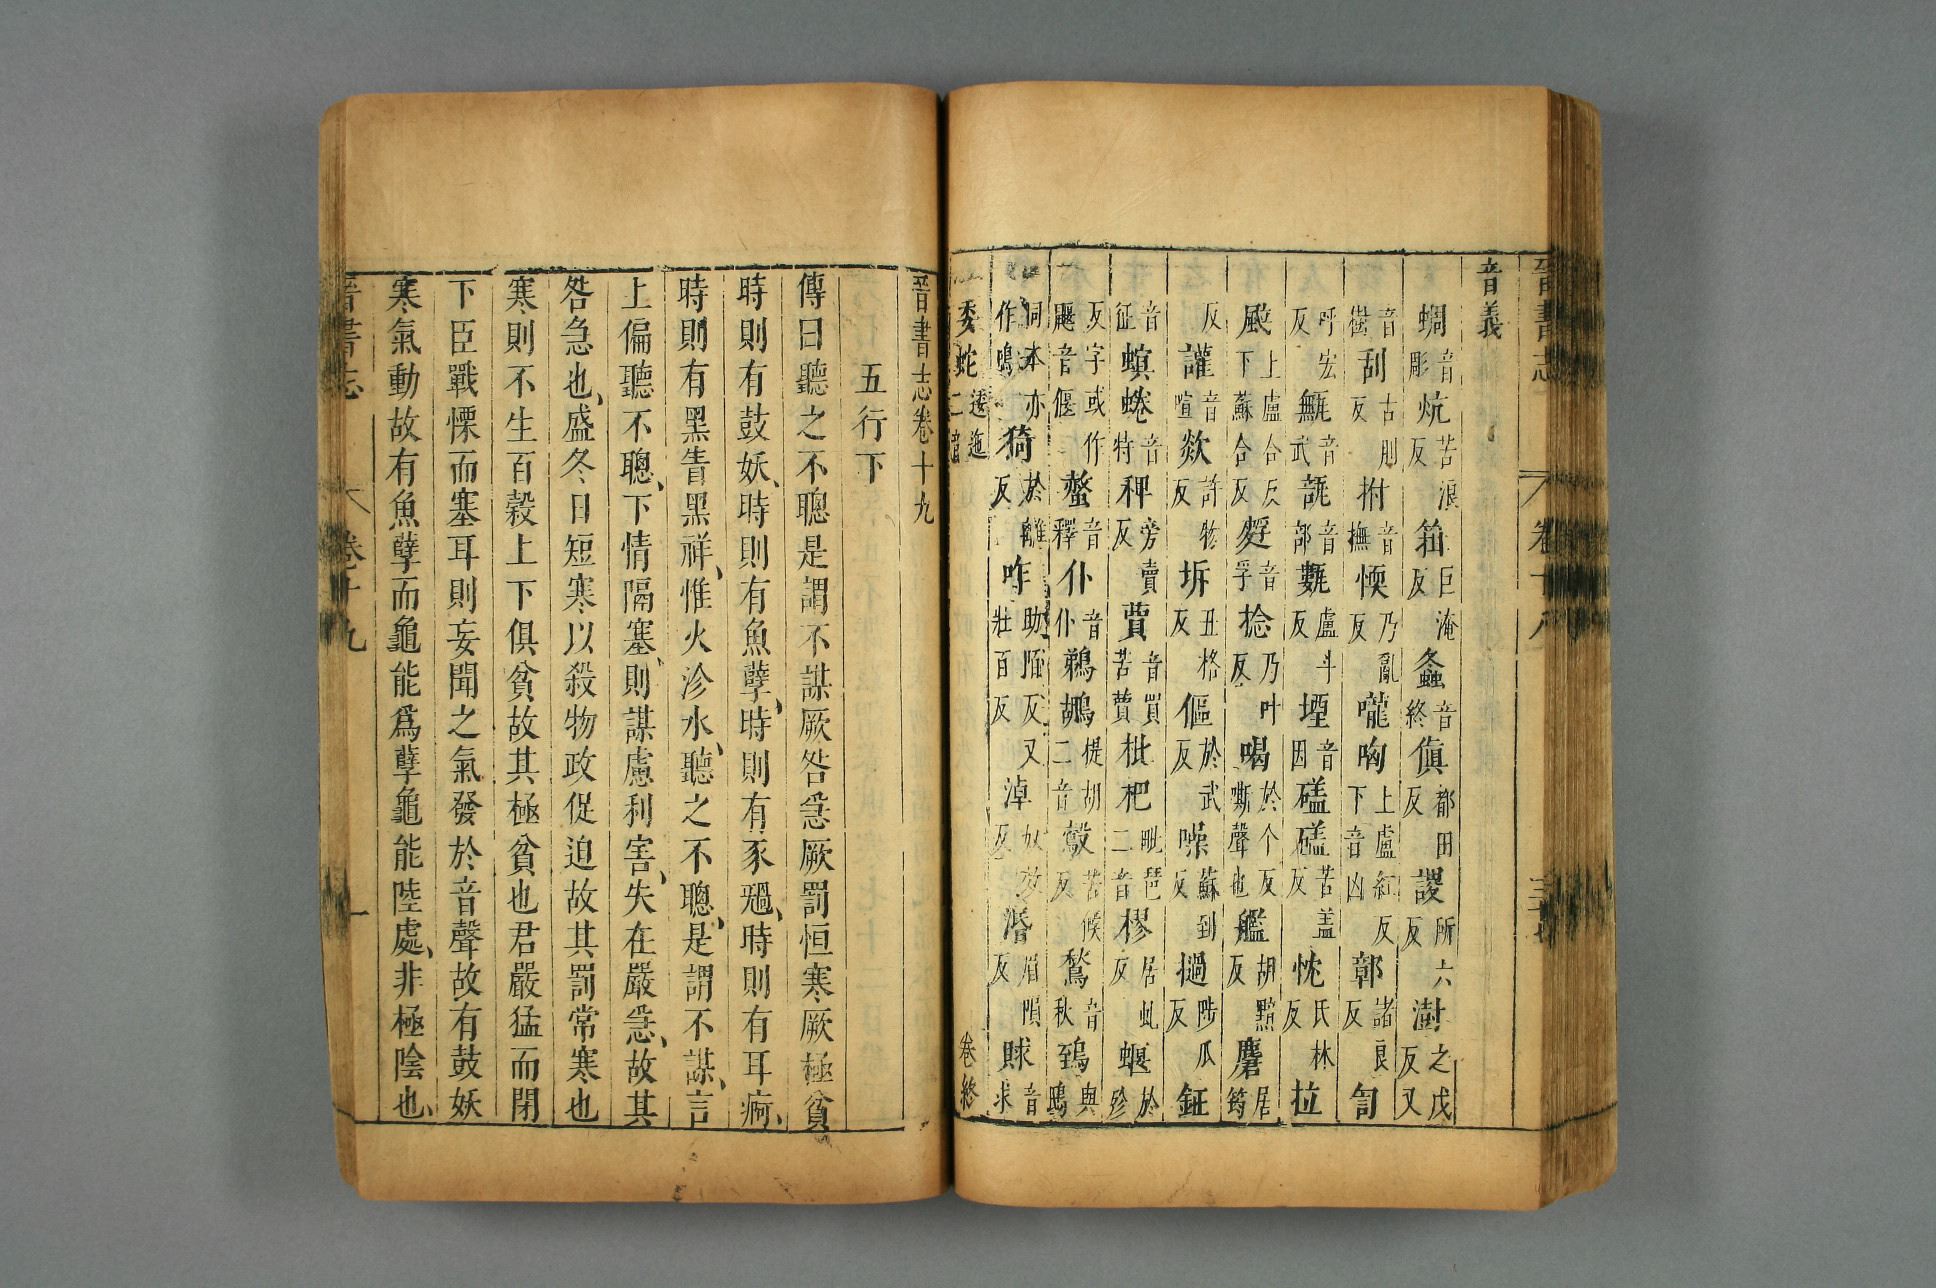 晉書志 卷十八
音義
蜩音彫炕苦浪反巨淹反螽音終傎都田反謖所六反澍之戍反又
音樹刮古刖反拊音撫愞乃亂反嚨胸上盧紅反下音凶鄣諸良反訇
呼宏反音武音部氀盧斗反堙音因礚礚苦盖反忱氏林反拉
颯上盧合反下蘇合反音孚捻乃叶反喝於个反嘶聲也艦胡黯反麏居筠
反讙音喧欻許物反坼丑格反傴於武反噪蘇到反撾陟瓜反鉦
音征螟蜷音特稗旁賣反蕒音買苦蕒枇杷毗琶二音樛居虬反蝘於殄
反字或作鼴音偃螫音釋仆音仆鵜鶘提胡二音鷇苦候反鶖音秋鵄與鴟
同本亦作鴟猗於離反咋助陌反又壯百反淖奴效反湣眉隕反賕音求
委蛇逶迤二音 卷終
晉書志卷十九
五行下
傳曰聽之不聰是謂不謀厥咎急厥罰恒寒厥極貧
時則有鼓妖、時則有魚孽、時則有豕禍、時則有耳痾、
時則有黑眚黑祥、惟火沴水、聽之不聰、是謂不謀、言
上偏聽不聰、下情隔塞、則謀慮利害、失在嚴急、故其
咎急也、盛冬日短寒以殺物政促迫故其罰常寒也
寒則不生百穀上下俱貧故其極貧也君嚴猛而閉
下臣戰慄而塞耳則妄聞之氣發於音聲故有鼓妖
寒氣動故有魚孽而龜能爲孽龜能陸處、非極陰也、
晉書志 卷十九 一